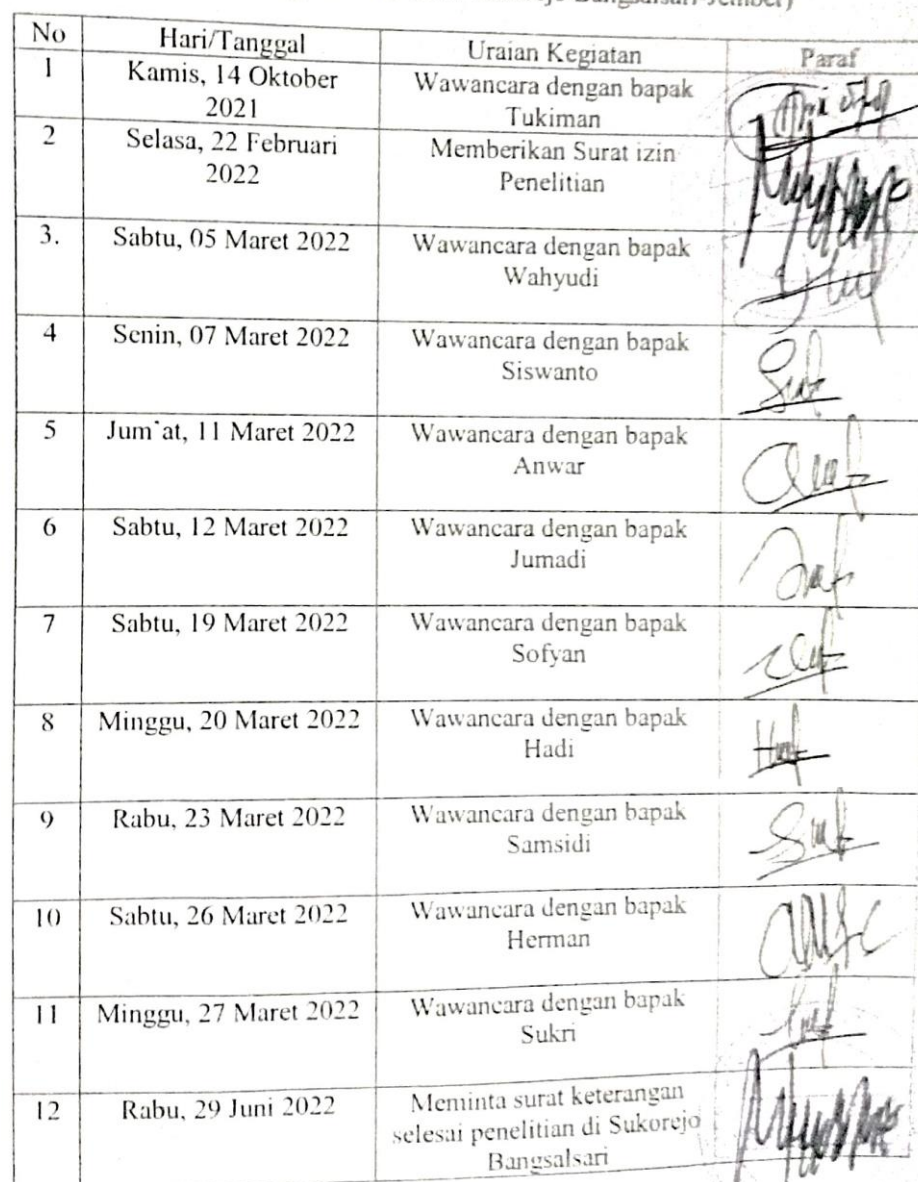 Bangsalsari-Jember)
No Hari/Tanggal Uraian Kegiatan Paraf
1 Kamis, 14 Oktober Wawancara dengan bapak
2021 Tukiman
2 Selasa, 22 Februari Memberikan Surat izin
2022 Penelitian
3. Sabtu, 05 Maret 2022 Wawancara dengan bapak
Wahyudi
4 Senin, 07 Maret 2022 Wawancara dengan bapak
Siswanto
5 Jum`at, 11 Maret 2022 Wawancara dengan bapak
Anwar
6 Sabtu, 12 Maret 2022 Wawancara dengan bapak
Jumadi
7 Sabtu, 19 Maret 2022 Wawancara dengan bapak
Sofyan
8 Minggu, 20 Maret 2022 Wawancara dengan bapak
Hadi
9 Rabu, 23 Maret 2022 Wawancara dengan bapak
Samsidi
10 Sabtu, 26 Maret 2022 Wawancara dengan bapak
Herman
11 Minggu, 27 Maret 2022 Wawancara dengan bapak
Sukri
12 Rabu, 29 Juni 2022 Meminta surat keterangan
selesai penelitian di Sukorejo
Bangsalsari